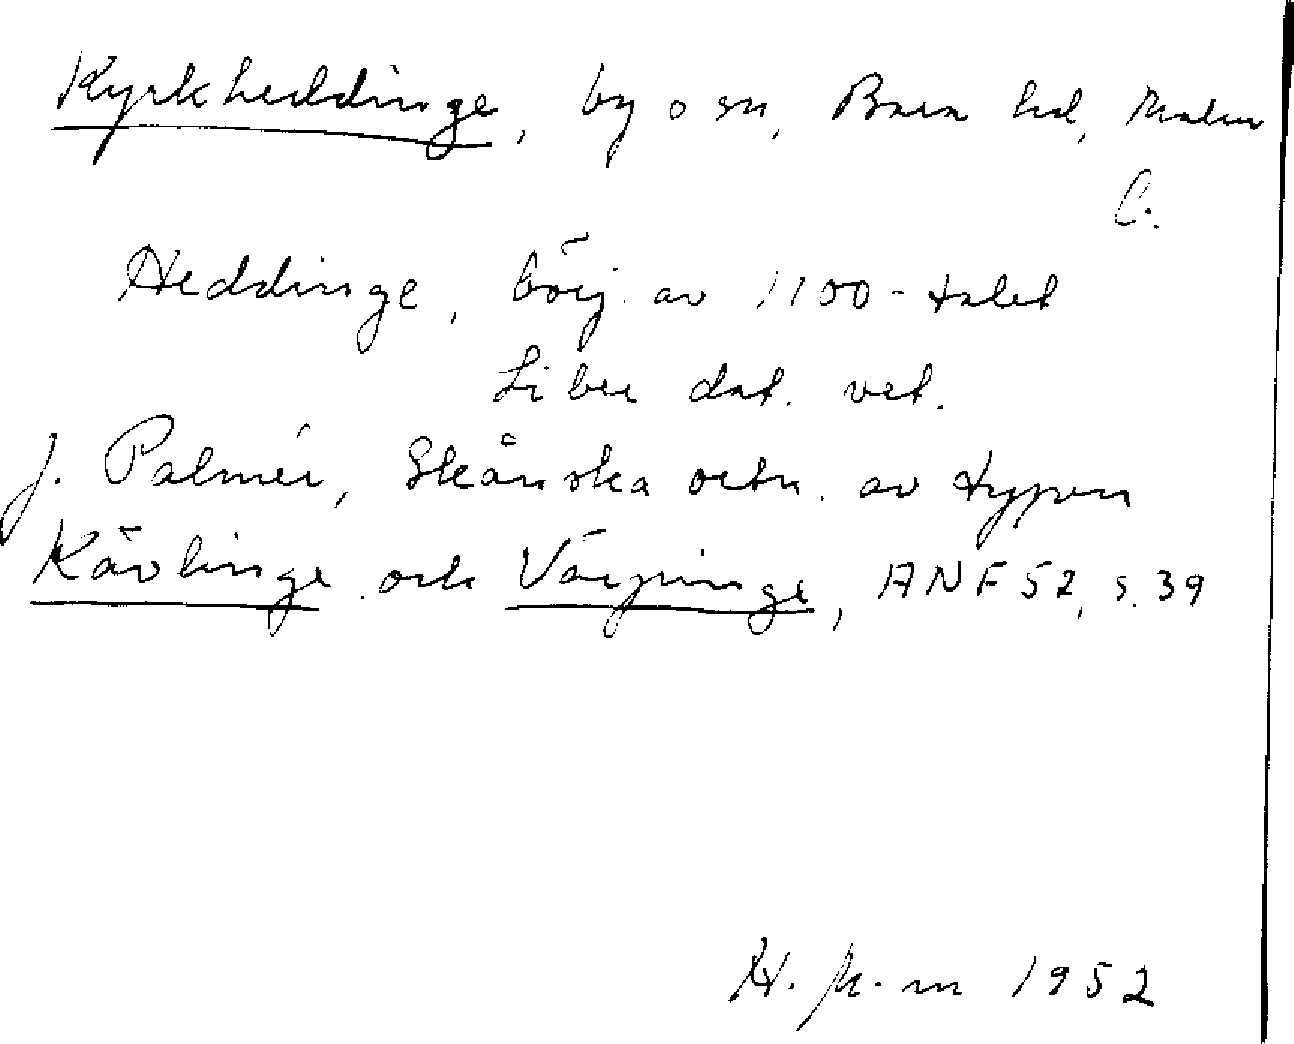 Kyrkheddinge, by o sn, Bara hd, Malm
C.
Heddinge, börj. av 1100-talet
Liber dat. vet.
J. Palmér, Skånska ortn. av typen
Kävlinge och Värpinge, ANF 52, s. 39
1952